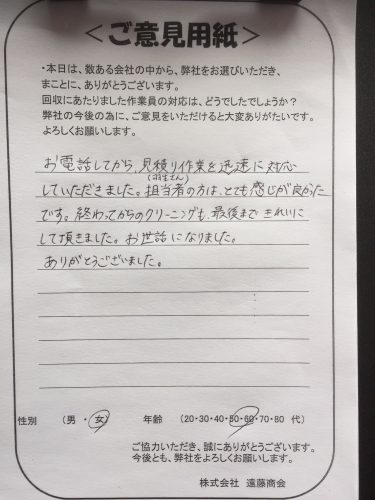 ＜ご意見用紙＞
・本日は、数ある会社の中から、弊社をお選びいただき、
まことに、ありがとうございます。
回収にあたりました作業員の対応は、どうでしたでしょうか？
弊社の今後の為に、ご意見をいただけると大変ありがたいです。
よろしくお願いします。
お電話してから、見積り作業を迅速に対応
していただきました。担当者の方は、とても感じが良かった
です。終わってからのクリーニングも、最後まできれいに
して頂きました。お世話になりました。
ありがとうございました。
性別 （男・女） 年齢 （20・30・40・50・60・70・80 代）
ご協力いただき、誠にありがとうございます。
今後とも、弊社をよろしくお願いします。
株式会社 遠藤商会